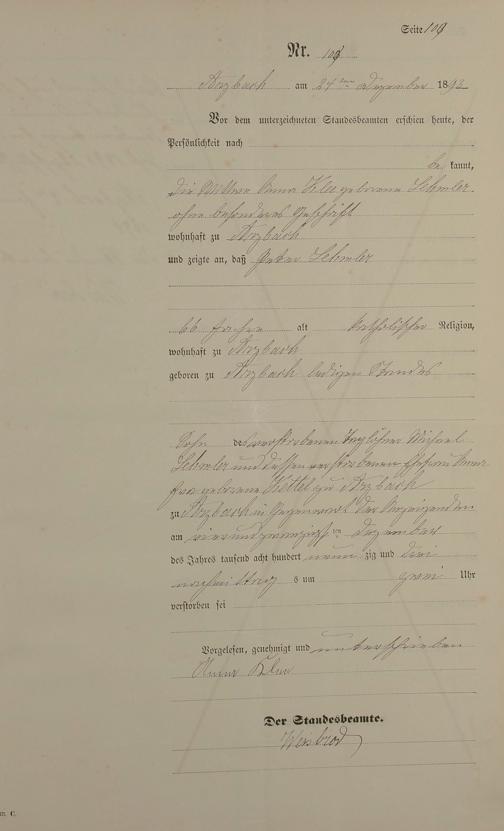 Seite 109
Nr. 109
Arzbach am 24ten Dezember 1893
Vor dem unterzeichneten Standesbeamten erschien heute, der
Persönlichkeit nach
be kannt,
die Wittwe Anna Klee geborene Lehmler
ohne besonderes Geschäft
wohnhaft zu Arzbach
und zeigte an, daß Peter Lehmler
66 Jahre alt katholischer Religion,
wohnhaft zu Arzbach
geboren zu Arzbach ledigen Standes
Sohn des verstorbenen Taglöhner Michael
Lehmler und dessen verstorbenen Ehefrau Anna
geborene zu Arzbach
zu Arzbach in Gegenwart der Anzeigenden
am vierundzwanzigsten Dezember
des Jahres tausend acht hundert neun zig und drei
nachmittags um zwei Uhr
verstorben sei
Vorgelesen, genehmigt und unterschrieben
Anna Klee
Der Standesbeamte.
Weisbrod
m. C.